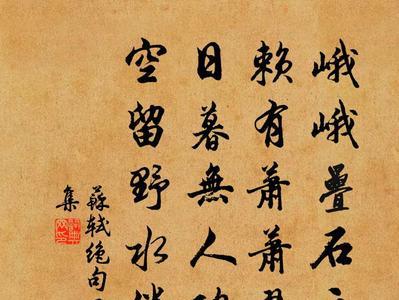 峨峨疊石
賴有蕭蕭
日暮無人
空留野水
蘇軾絕句
集